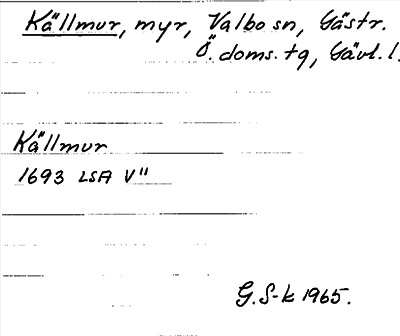 Källmur, myr, Valbo sn, Gästr.
Ö. doms. tg, Gävl. l.
Källmur
1693 LSA V"
G. S-k 1965.